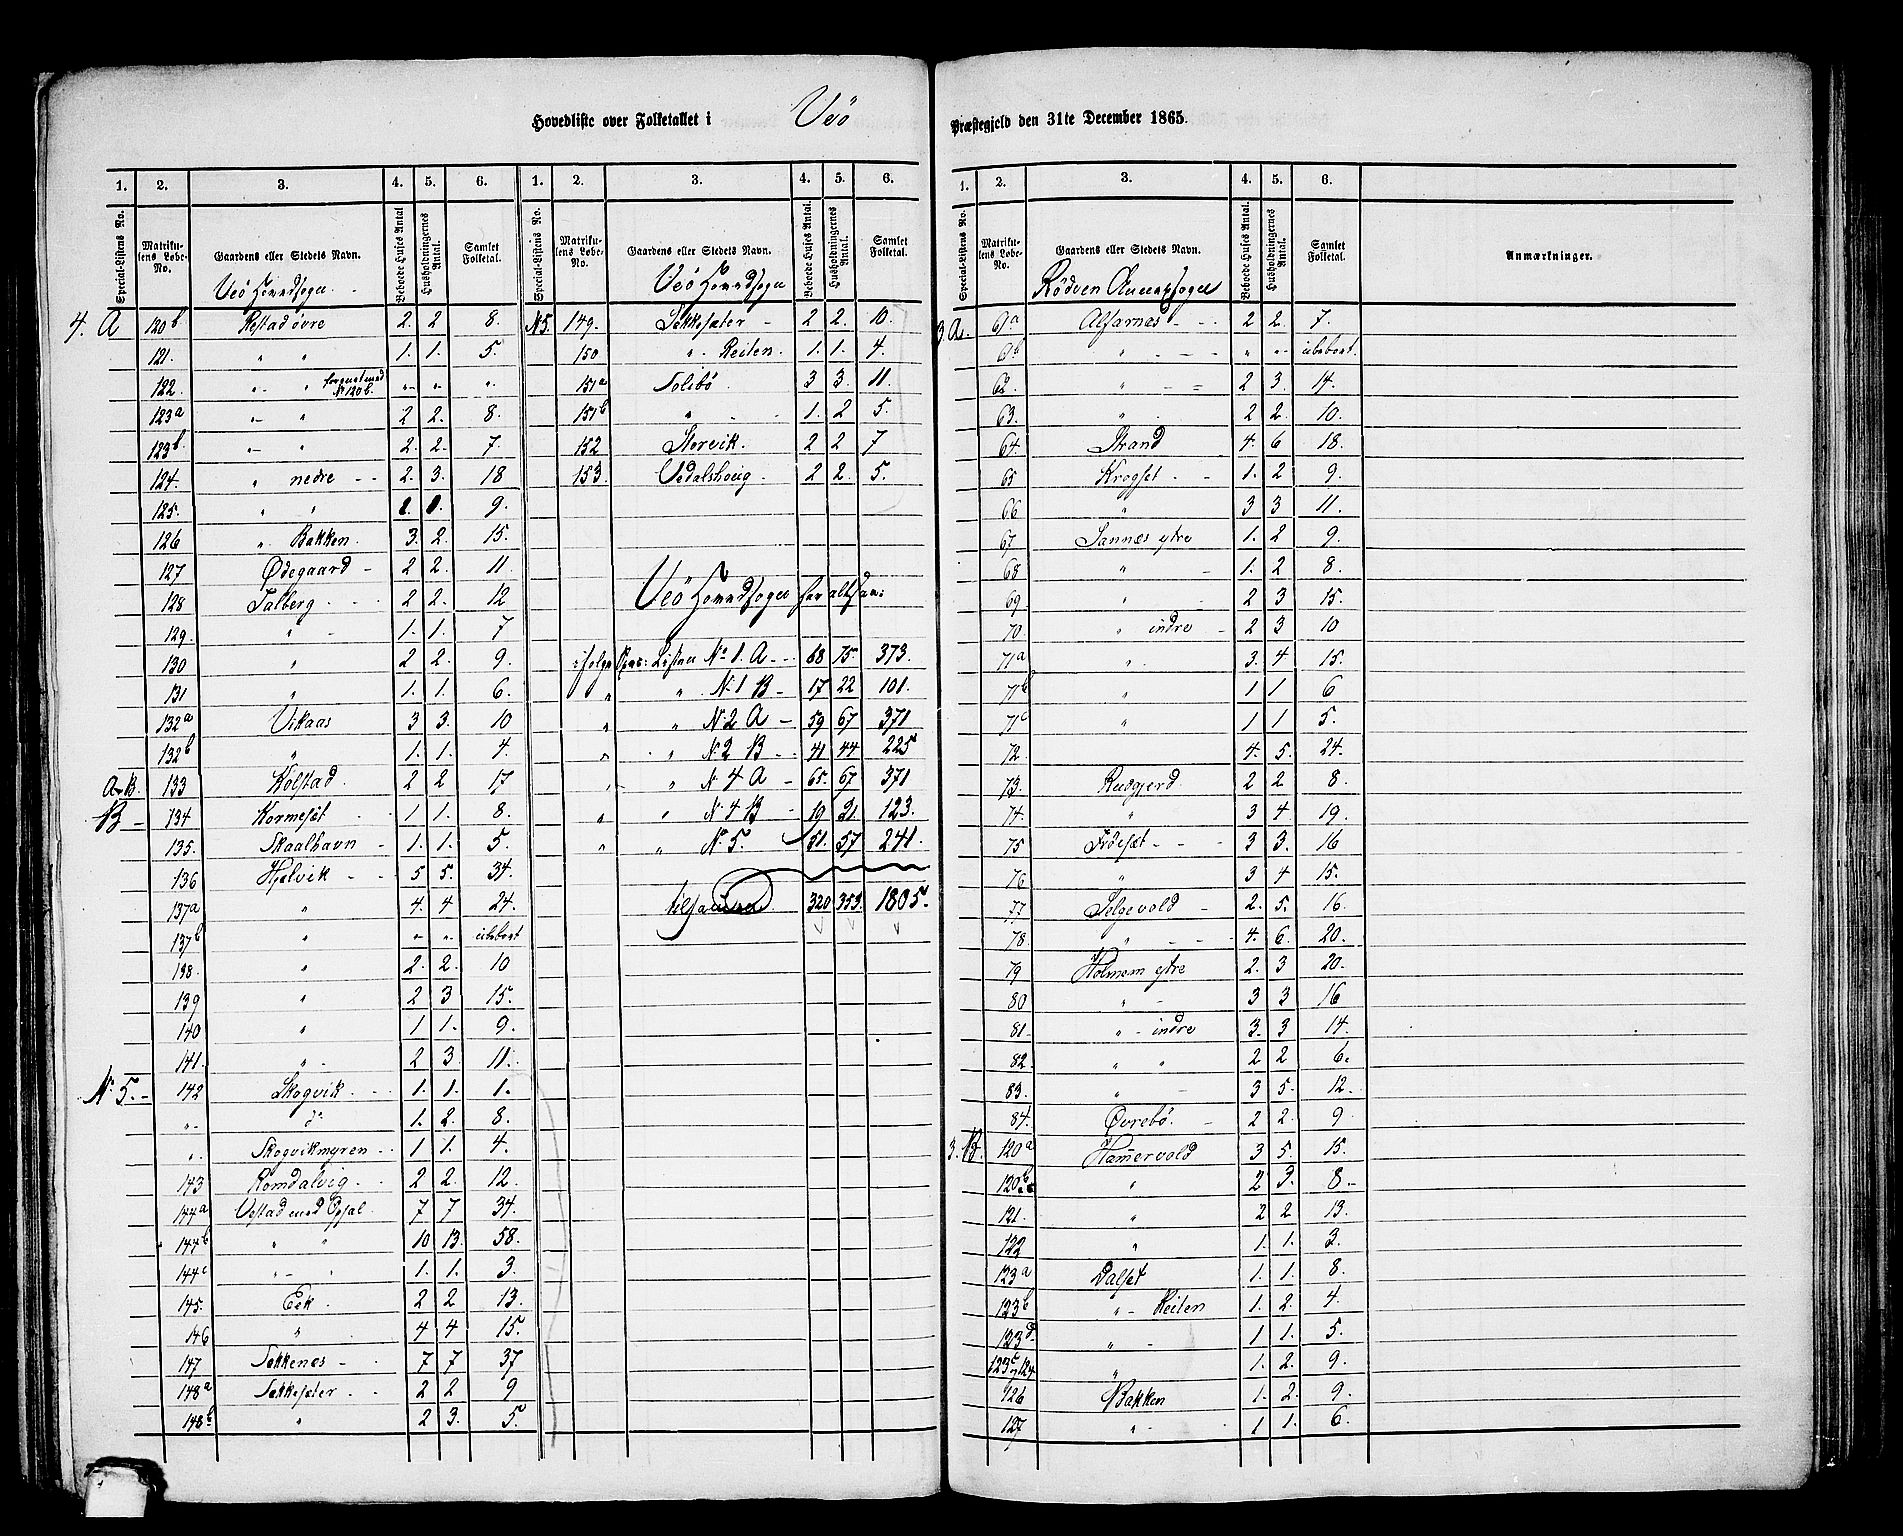 Hovedliste over Folketallet i Veö Præstegjeld den 31te December 1865.
1. 2. 3. 4. 5. 6. 1. 2. 3. 4. 5. 6.
Special-Listens No. Matrikulens Løbe-No. Gaardens eller Stedets Navn. Beboede Huses Antal Husholdningernes Antal. Samlet Folketal.
Veö Hovedsogn
4. A 120b Restad øvre 2. 2 8.
121. " " 1. 1. 5.
122. " " N. 120b. " " "
123a " " 2 2. 8.
123b. " " 2. 2. 7.
124. " nedre 2. 3. 18
125. " " 1. 1. 9.
126 " Bakken. 3. 2. 15.
127 Ødegaard 2 2. 11.
128 Talberg 2 2. 12
129. " 1. 1. 7
130 " 2 2. 9.
131 " 1. 1. 6.
132a Vikaas 3 3. 10
132b " 1. 1. 4.
A.B. 133 Kolstad. 2 2 17
B 134 Kormesæt 1 1. 8.
135. Skaalhavn 1. 1. 5.
136 Hjelvik 5 5. 34.
137a " 4. 4 24.
137b " " " ubeboet
138. " 2. 2. 10
139 " 2 3 15.
140 " 1 1. 9.
141. " 2 3. 11.
N. 5. 142 Skogvik 1. 1. 1.
" do 1. 2. 8.
" Skogvikmyren 1 1. 4.
143 Romdalvig 2 2. 12.
144a Vestad med Opsal. 7 7 34.
144b " " 10 13. 58.
144c " " 1. 1. 3.
145. Eik. 2 2 13.
146 " 4 4 15.
147 Sekkenæs 7 7 37
148a Sekkesæter 2 2 9
148b. " 2 3. 5.
Special-Listens No. Matrikulens Løbe-No. Gaardens eller Stedets Navn. Beboede Huses Antal. Husholdningernes Antal. Samlet Folketal.
Veö Hovedsogn
N5. 149. Sekkesæter 2 2. 10.
150 " Reiten. 1. 1. 4.
151a Solebö 3 3. 11.
151b " 1. 2 5.
152 Storvik. 2 2 7
153 Vedalshoug 2 2. 5.
Veö Hovedsogn har altsaa:
ifølge Spec: Listen No 1. A 68 75 373.
" " N. 1 B 17 22 101.
" " N. 2 A 59 67 371
" " N. 2 B 41 44 225
" " N. 4 A 65. 67 371
" " N. 4 B 19 21. 123.
" " N. 5. 51. 57 241.
tilsammen 320 353. 1805.
1. 2. 3. 4. 5. 6.
Special-Listens No. Matrikulens Løbe-No. Gaardens eller Stedets Navn. Beboede Huses Antal. Husholdningernes Antal. Samlet Folketal. Anmærkninger.
Rödven Annexsogn
3 A. 61a Alfarnes 2 2. 7.
61b " " " ubeboet.
62. " 2 3. 14.
63. " 2 2. 10.
64. Strand 4. 6 18.
65 Krogset 1. 2 9.
66 " 3 3 11.
67 Sannes ytre 1. 2 9.
68 " 1. 2 8.
69 " 2 3 15.
70 " indre 2 3 10
71a " 3. 4 15.
71b " 1 1 6
71c " 1 1 5.
72 4. 5. 24.
73. Rudgjerd. 2 2 8.
74. " 3 4 19.
75 Fidesæt 3 3. 16
76 " 3 4 15.
77 Selgevold 2. 5. 16.
78. " 4. 6. 20.
79 Holmem ytre 2. 3 20.
80 " 3 3 16
81. " indre 3. 3 14.
82. " " 2 2 6.
83. " 3 5. 12.
84. Øvrebö 2 2. 9
3. B. 120a Hammervold 3 5. 15.
120b. " 2 3. 8
121. " 2 2. 13.
122 " 1. 1. 3.
123a Dalset 1. 1. 8.
123b " Reiten 1. 2. 4.
123d. " 1 1. 5.
123c og 124 " 1. 2. 9.
126 Bakken 1. 2. 9.
127 " 1 1. 6.